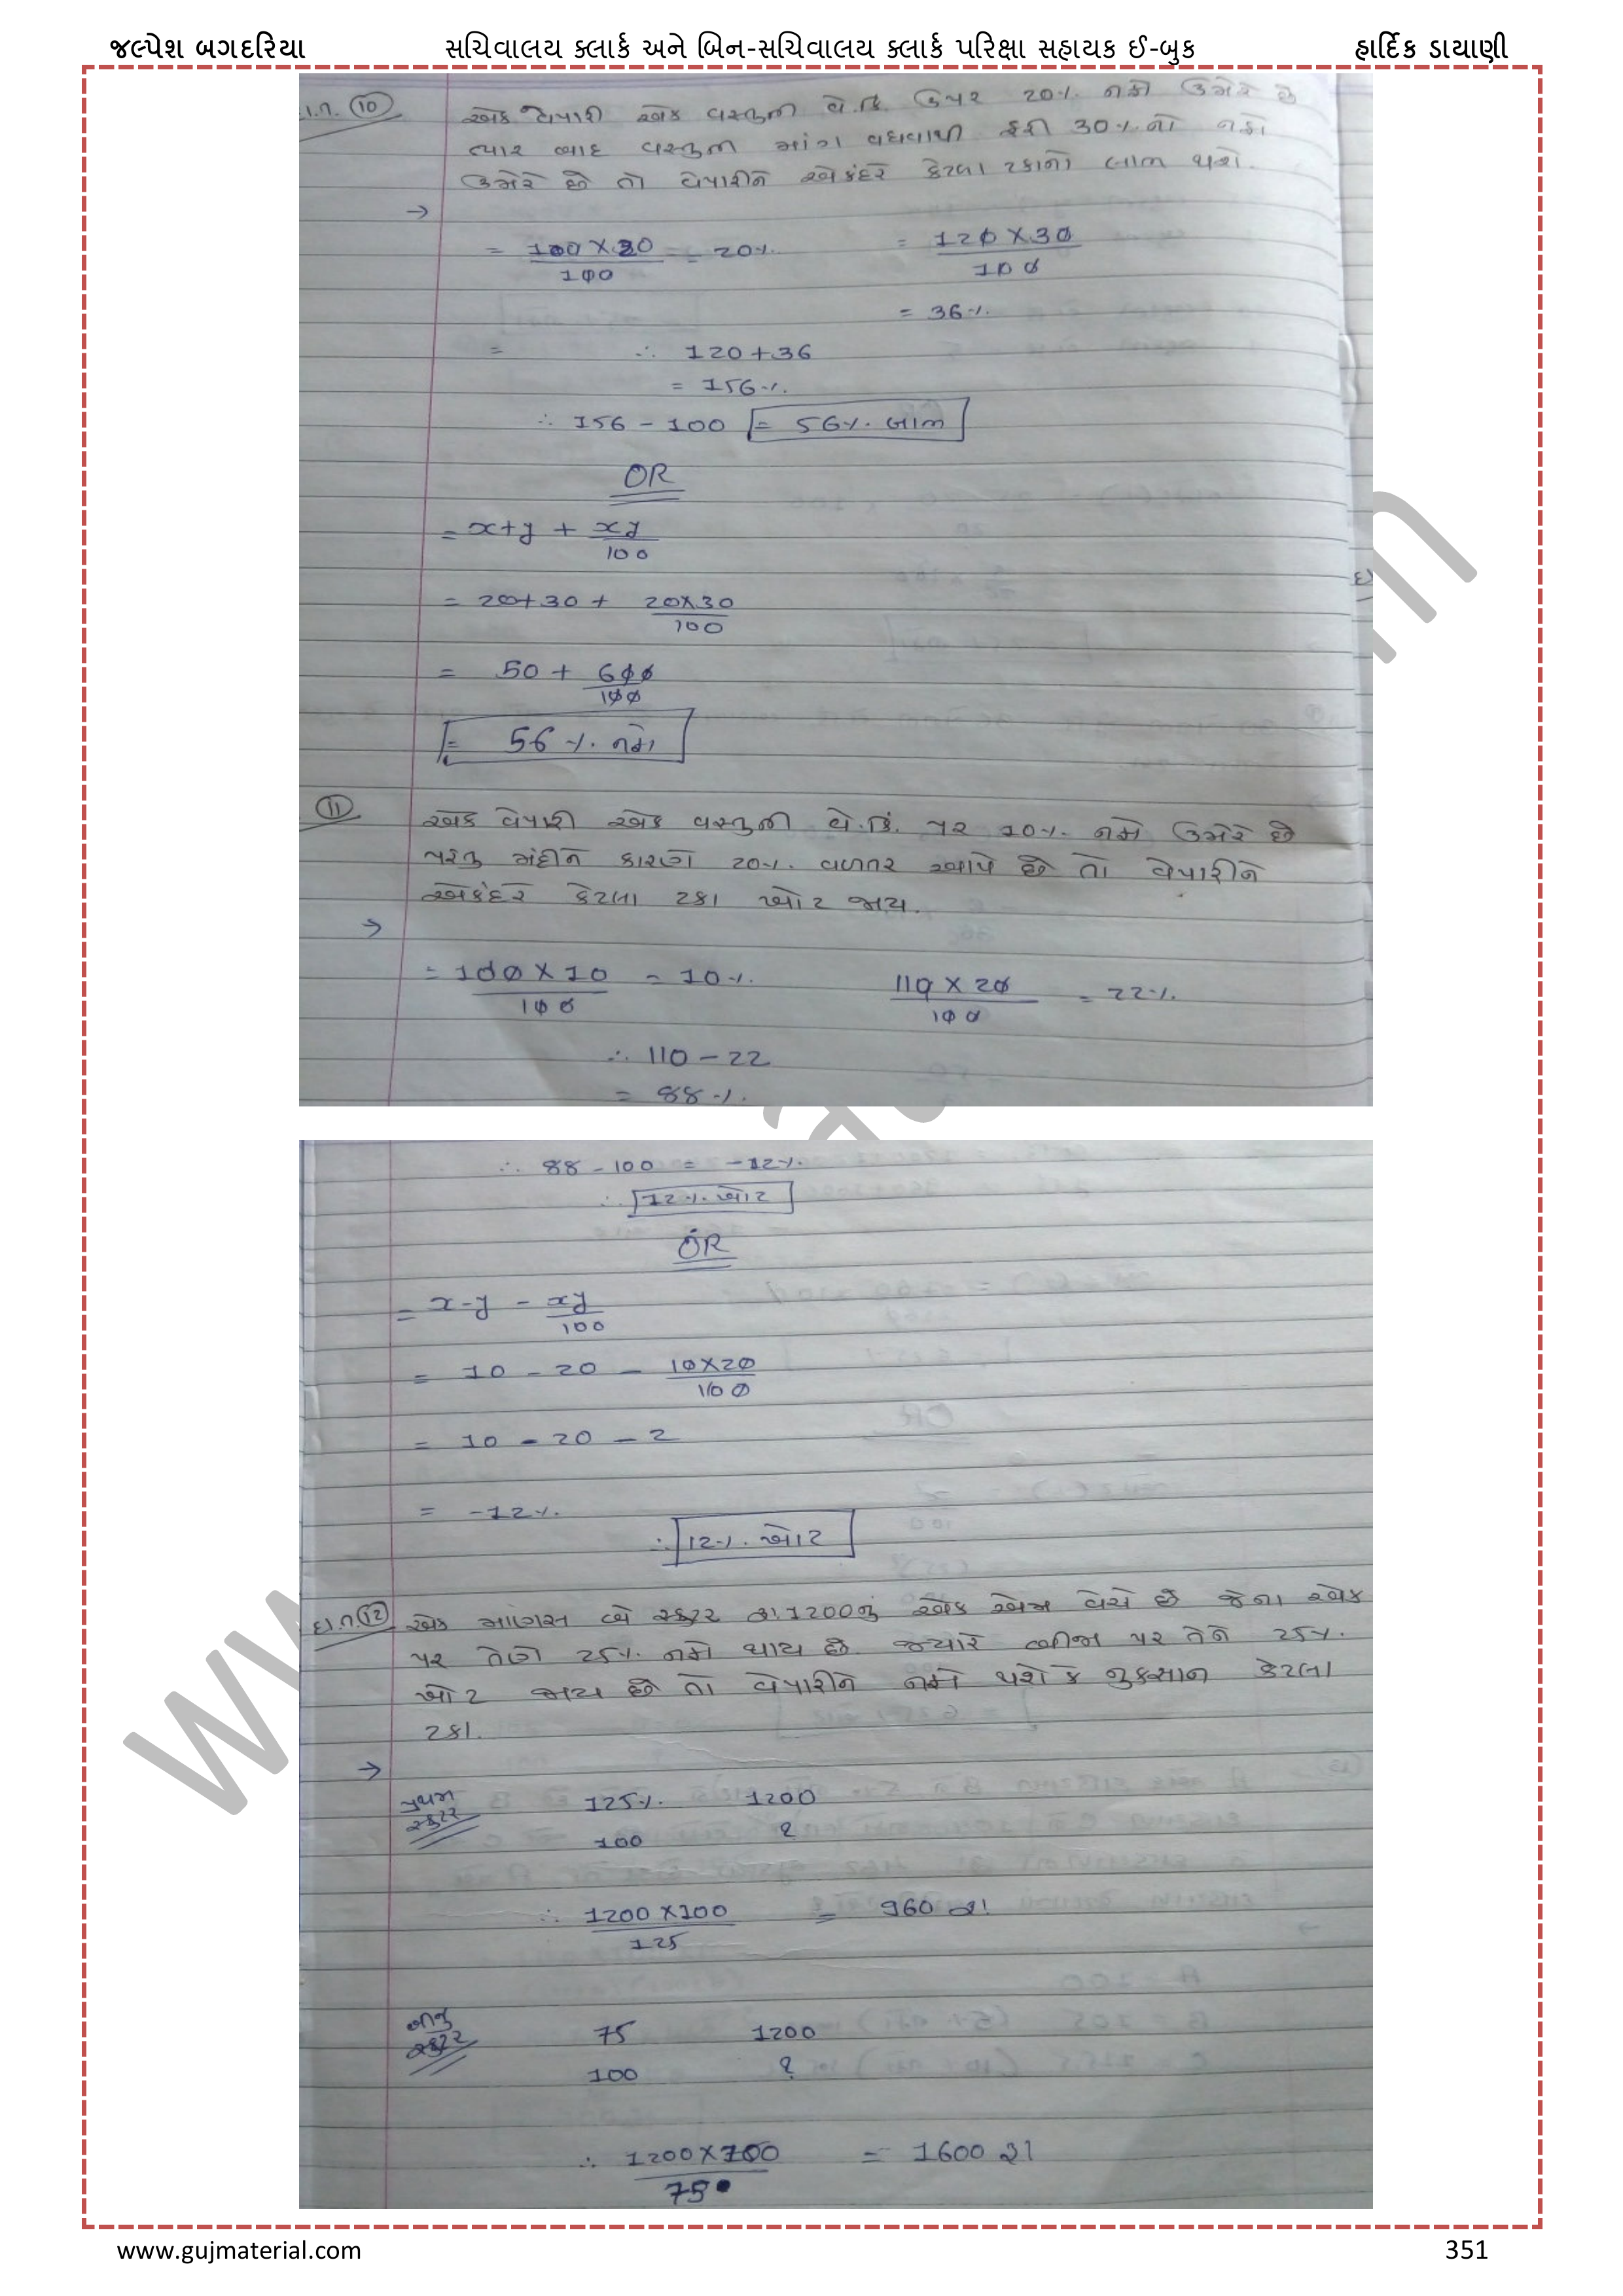 જલ્પેશ બગદરિયા સચિવાલય ક્લાર્ક અને બિન-સચિવાલય ક્લાર્ક પરિક્ષા સહાયક ઈ-બુક હાર્દિક ડાયાણી
દા.ત. 10 એક વેપારી એક વસ્તુની વે.કિં. ઉપર 20% નફો ઉમેરે છે
ત્યાર બાદ વસ્તુની માંગ વધવાથી ફરી 30% નો નફો
ઉમેરે છે તો વેપારીને એકંદરે કેટલા ટકાનો લાભ થશે.
→
= 100 × 20 / 100 = 20% = 120 × 30 / 100
= 36%
= ∴ 120 + 36
= 156%
∴ 156 - 100 = 56% લાભ
OR
= x+y + xy / 100
= 20+30 + 20×30 / 100
= 50 + 600 / 100
= 56% નફો
11 એક વેપારી એક વસ્તુની વે.કિં. પર 10% નફો ઉમેરે છે
પરંતુ મંદીને કારણે 20% વળતર આપે છે તો વેપારીને
એકંદરે કેટલા ટકા ખોટ જાય.
→
= 100 × 10 / 100 = 10% 110 × 20 / 100 = 22%
∴ 110 - 22
= 88%
∴ 88 - 100 = -12%
∴ 12% ખોટ
OR
= x-y - xy / 100
= 10 - 20 - 10×20 / 100
= 10 - 20 - 2
= -12%
∴ 12% ખોટ
દા.ત. 12 એક માણસ બે સ્કુટર રૂા.1200નું એક એમ વેચે છે જેના એક
પર તેણે 25% નફો થાય છે જ્યારે બીજા પર તેને 25%
ખોટ જાય છે તો વેપારીને નફો થશે કે નુકસાન કેટલા
ટકા.
→
પ્રથમ સ્કુટર 125% 1200
100 ?
∴ 1200 × 100 / 125 = 960 રૂા
બીજુ સ્કુટર 75 1200
100 ?
∴ 1200 × 100 / 75 = 1600 રૂા
www.gujmaterial.com 351